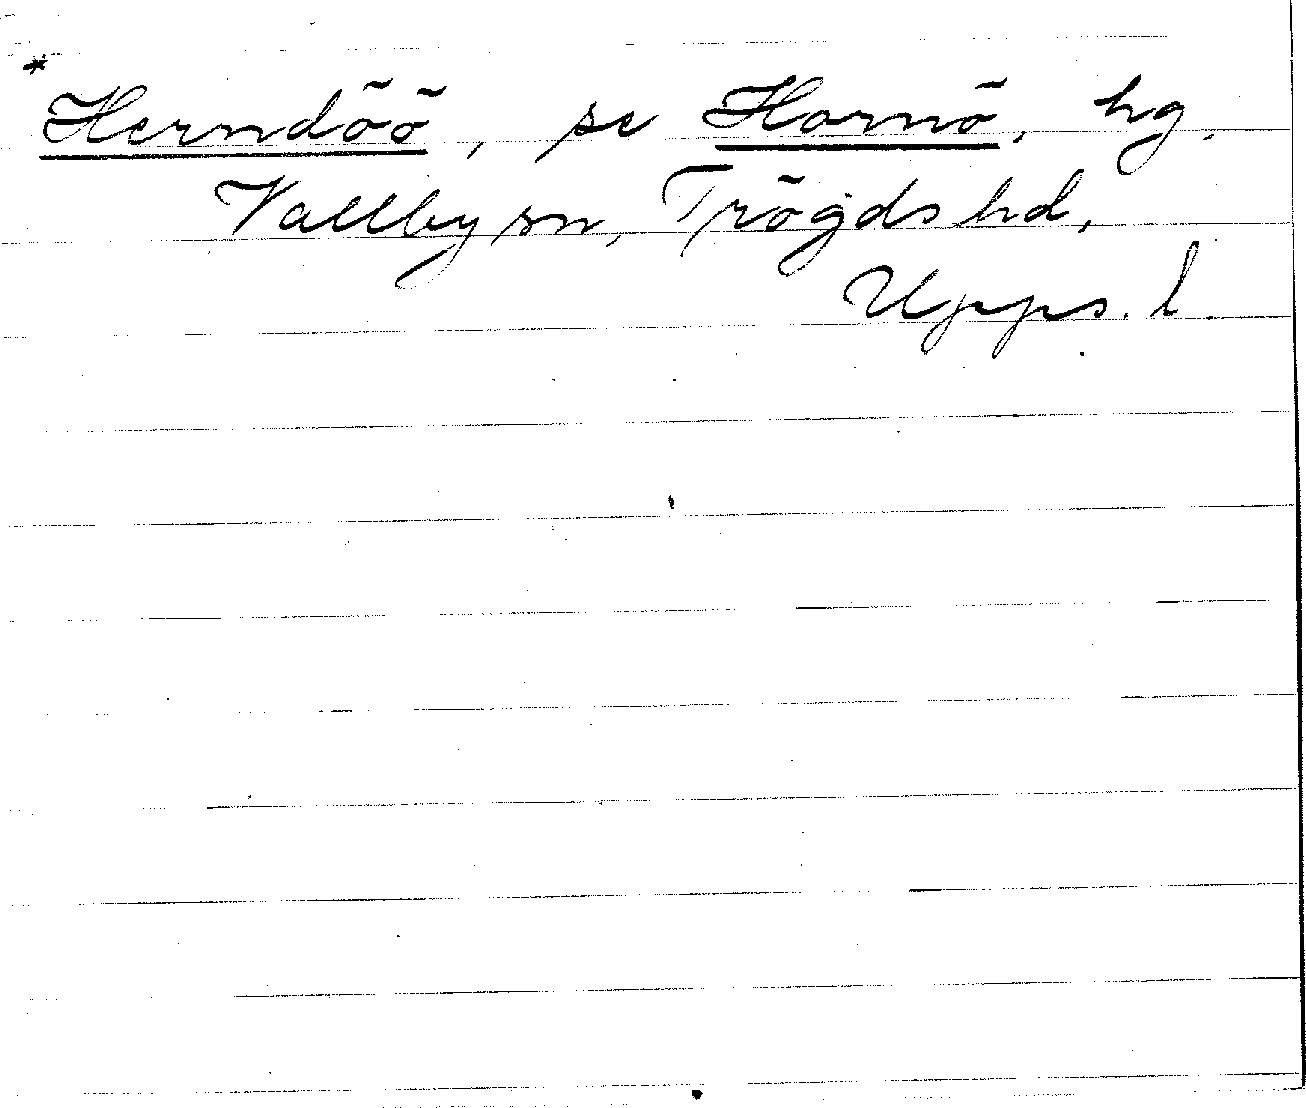 * Herndöö, se Hornö, hg.
Vallby sn, Trögds hd,
Upps. l.